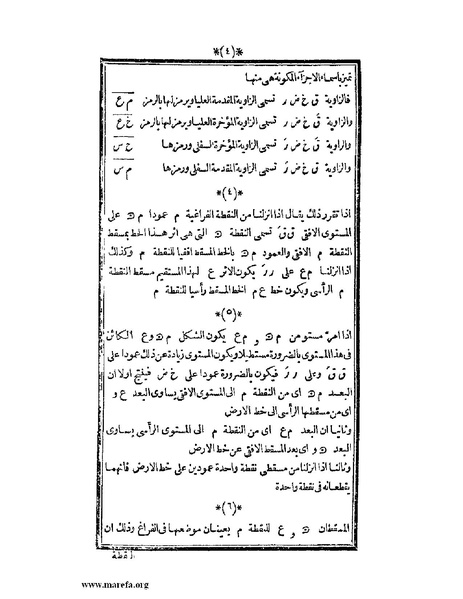 *(٤)*
تميز باسماء الاجزاء المكونة هى منها
فالزاوية ق خ ض ر تسمى الزاوية المقدمة العليا ويرمز لها بالرمز م ع
والزاوية قَ خ ض ر تسمى الزاوية المؤخرة العليا ويرمز لها بالرمز خ ع
والزاوية قَ خ ض رَ تسمى الزاوية المؤخرة السفلى ورمزها خ س
والزاوية ق خ ض رَ تسمى الزاوية المقدمة السفلى ورمزها م س
*(٤)*
اذا تقرر ذلك يقال اذا انزلنا من النقطة الفراغية م عمودا م ﻫ على
المستوى الافقى ق قَ تسمى النقطة ﻫ التى هى اثر هذا الخط بمسقط
النقطة م الافقى والعمود م ﻫ بالخط المسقط افقيا للنقطة م وكذلك
اذا انزلنا م ع على ر رَ يكون الاثر ع لهذا المستقيم مسقط النقطة
م الرأسى ويكون خط ع م الخط المسقط رأسيا للنقطة م
*(٥)*
اذا امر مستو من م ﻫ و م ع يكون الشكل م ﻫ و ع الكائن
فى هذا المستوى بالضرورة مستطيلا ويكون المستوى زيادة عن ذلك عمودا على
ق قَ وعلى ر رَ فيكون بالضرورة عمودا على خ ض فينتج اولا ان
البعد م ﻫ اى من النقطة م الى المستوى الافقى يساوى البعد ع و
اى من مسقطها الرأسى الى خط الارض
وثانيا ان البعد م ع اى من النقطة م الى المستوى الرأسى يساوى
البعد ﻫ و اى بعد المسقط الافقى عن خط الارض
وثالثا اذا انزلنا من مسقطى نقطة واحدة عمودين على خط الارض فانهما
يقطعانه فى نقطة واحدة
*(٦)*
المسقطان ﻫ و ع للنقطة م يعينان موضعها فى الفراغ وذلك ان
النقطة
www.marefa.org